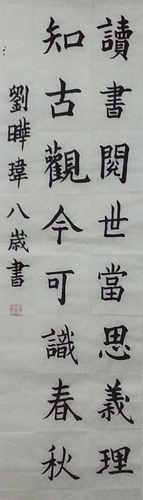 讀書閱世當思義理
知古觀今可識春秋
劉曄瑋八歲書